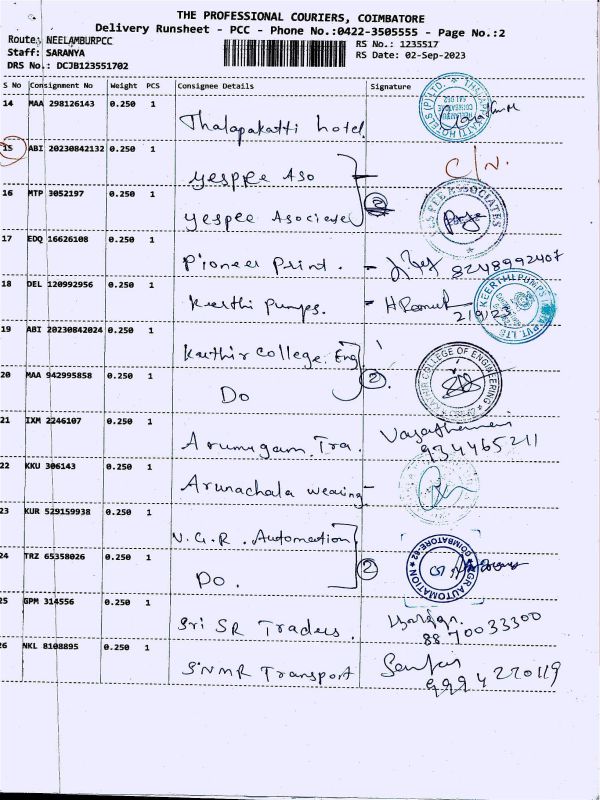 THE PROFESSIONAL COURIERS, COIMBATORE
Delivery Runsheet - PCC - Phone No.:0422-3505555 - Page No.:2
Route: NEELAMBURPCC
Staff: SARANYA
DRS No.: DCJB123551702
RS No.: 1235517
RS Date: 02-Sep-2023
S No Consignment No Weight PCS Consignee Details Signature
14 MAA 298126143 0.250 1
Thalapakatti hotel
15 ABI 20230842132 0.250 1
C/N.
yespee Aso
16 MTP 3052197 0.250 1
yespee Asociese
17 EDQ 16626108 0.250 1
Pioneer Print. - 8248992407
18 DEL 120992956 0.250 1
Keerthi Pumps. - 2/9/23
KEERTHI PUMPS PVT. LTD
19 ABI 20230842024 0.250 1
Kathir College. Eng
20 MAA 942995858 0.250 1
Do 2
KATHIR COLLEGE OF ENGINEERING
21 IXM 2246107 0.250 1
Arumugam. Tra. 934465211
22 KKU 306143 0.250 1
Arunachala weaving
23 KUR 529159938 0.250 1
N.G.R. Automation
24 TRZ 65358026 0.250 1
Do. 2
NGR AUTOMATION COIMBATORE-62
25 GPM 314556 0.250 1
Sri SR Traders. 8870033300
26 NKL 8108895 0.250 1
SNMR Transport 9994270119